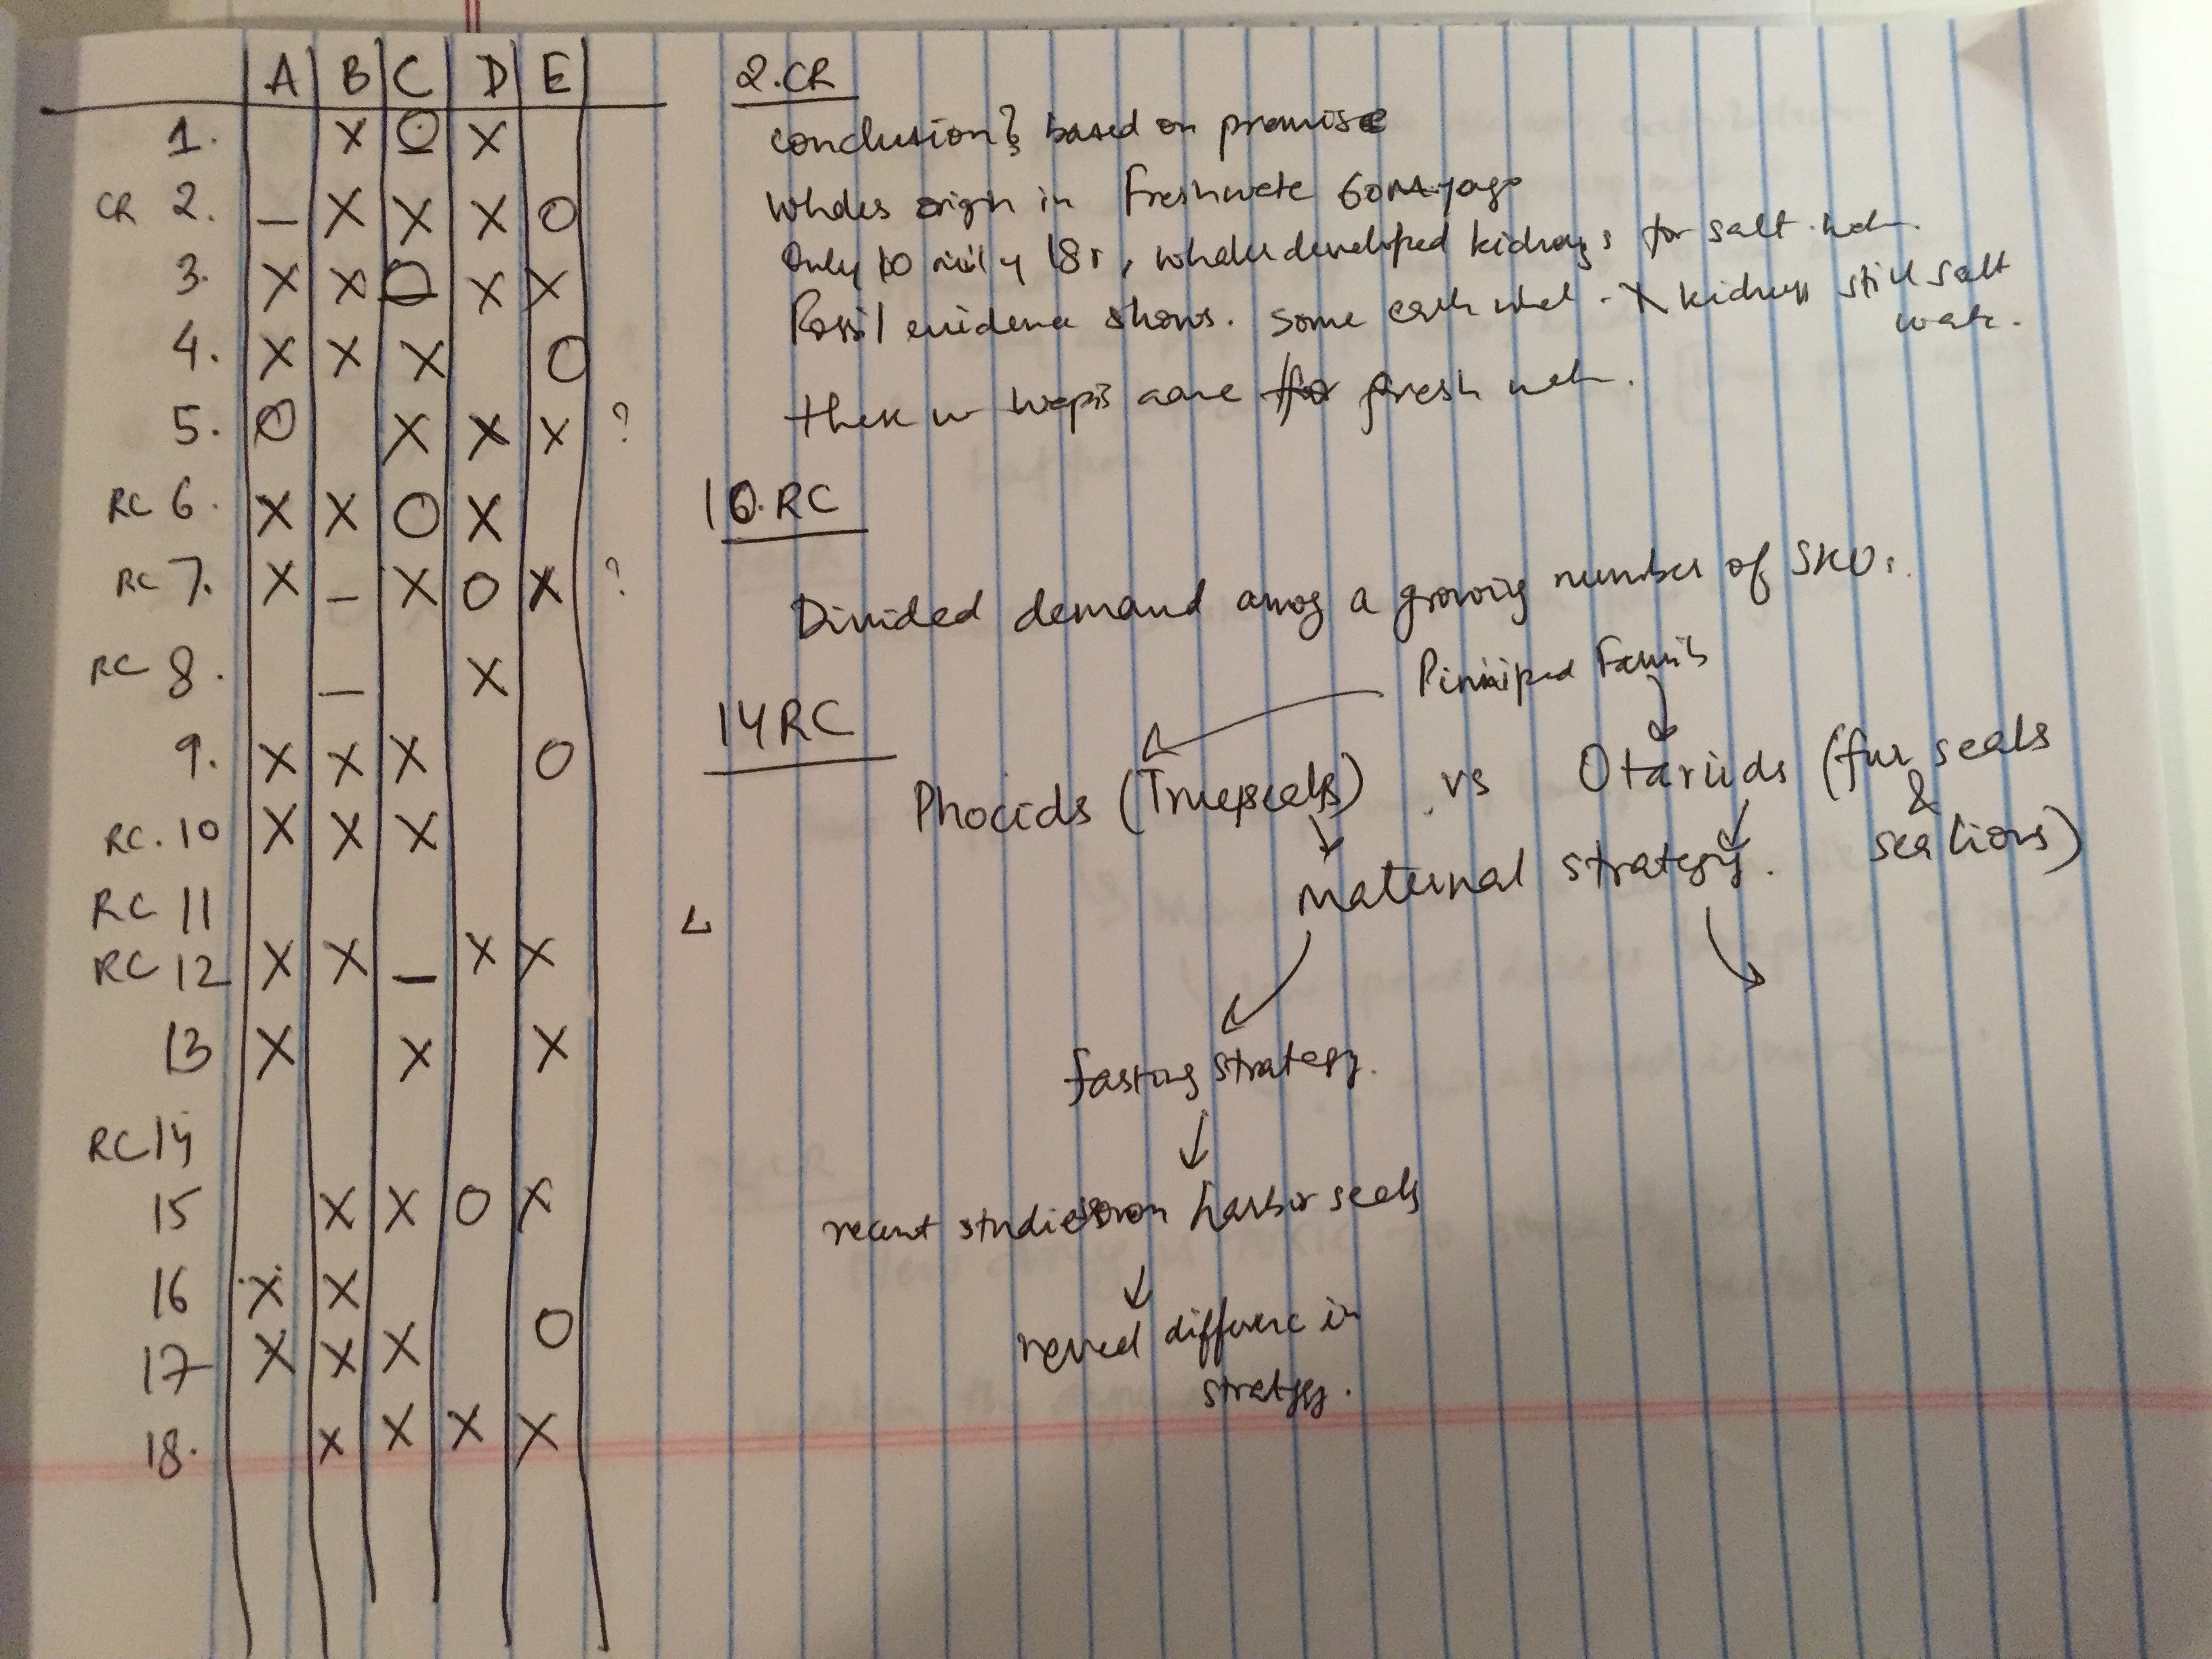 A B C D E
1. X O X
CR 2. _ X X X O
3. X X O X X
4. X X X O
5. O X X X ?
RC 6. X X O X
RC 7. X _ X O X ?
RC 8. _ X
9. X X X O
RC. 10 X X X
RC 11
RC 12 X X _ X X
13 X X X
RC 14
15 X X O X
16 X X
17 X X X O
18. X X X X
2. CR
conclusion? based on premise
whales origin in Freshwate 50M.yago
Only 10 , whales developed kidneys for salt
Fossil evidence shows. some X kidneys still salt
wate.
fresh
10. RC
Divided demand amog a growing number of SKUs.
14 RC
Pinniped Family
Phocids (True seals) vs Otariids (fur seals
&
sea lions)
maternal strategy.
fasting strategy.
recent studies on harbor seals
reveal differenc in
strategy.